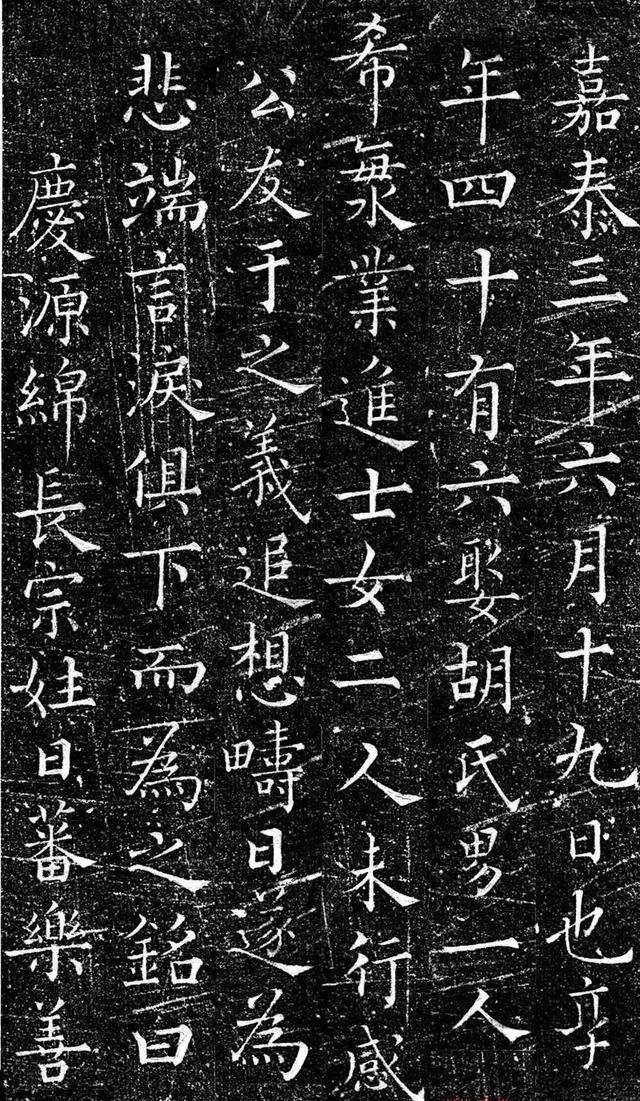 嘉泰三年六月十九日也享
年四十有六娶胡氏男一人
希業進士女二人未行感
公友于之義追想疇日遂為
悲端言淚俱下而為之銘曰
慶源綿長宗姓日蕃樂善